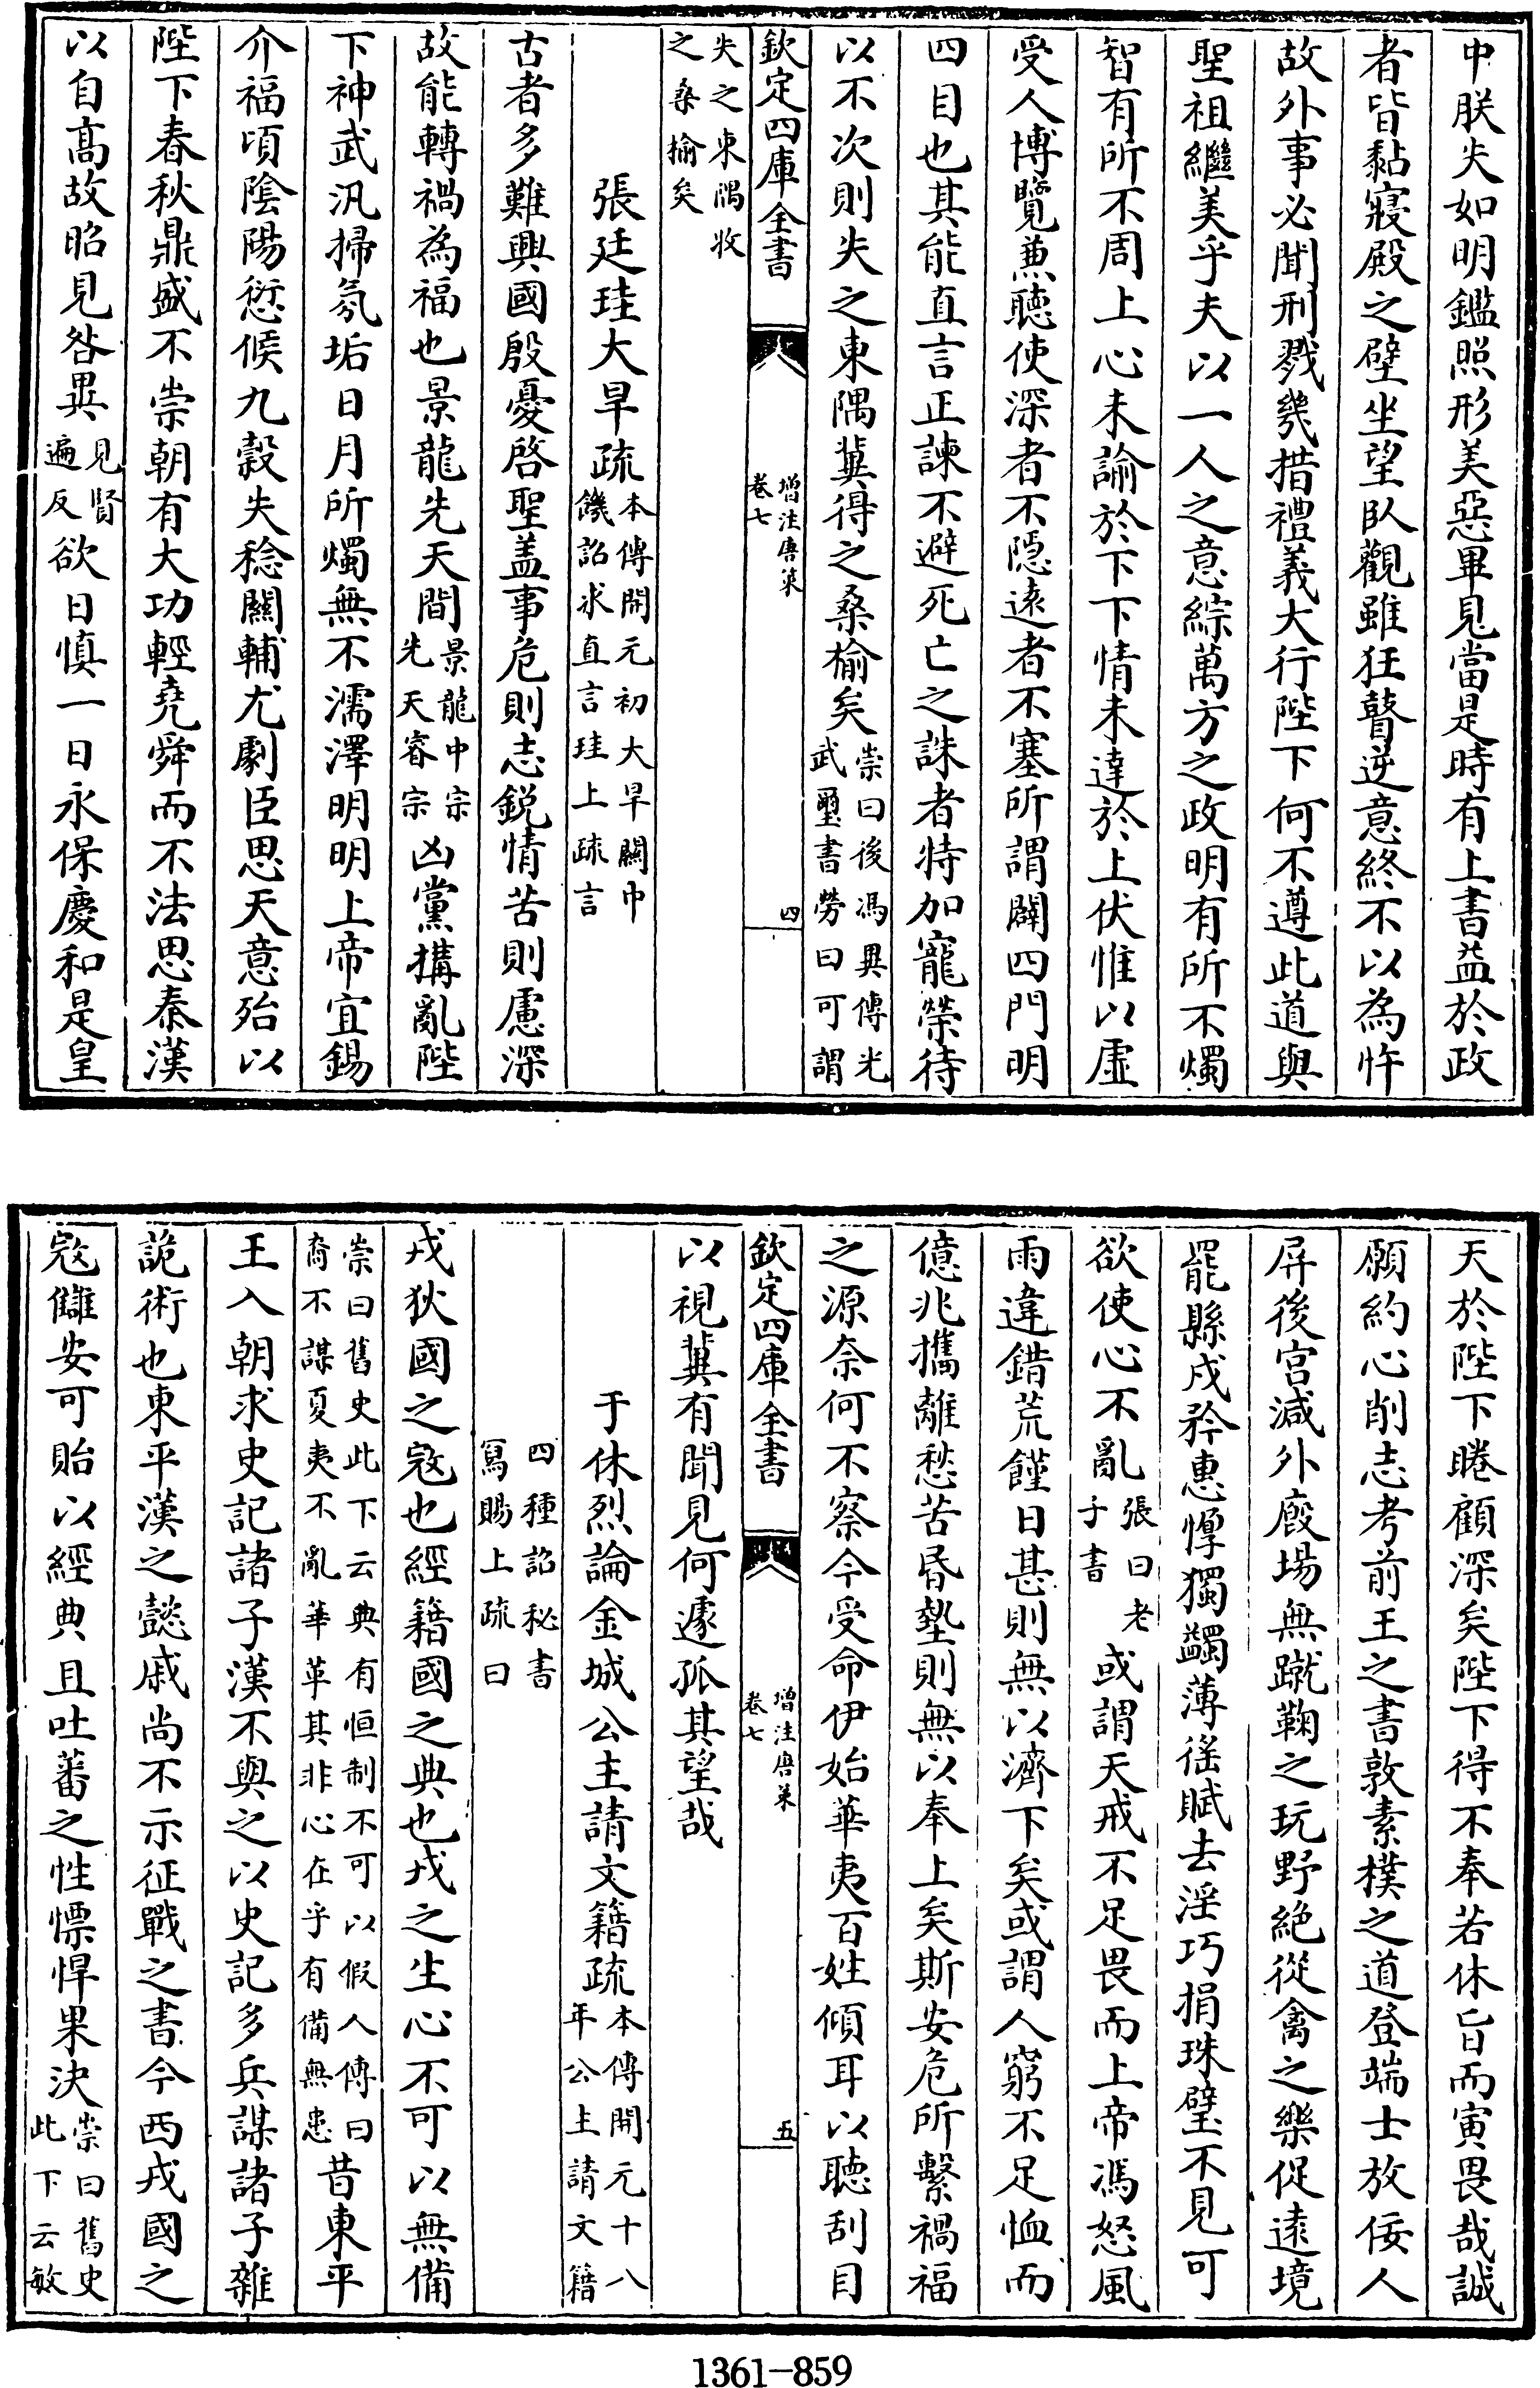 中朕失如明鑑照形美惡畢見當是時有上書益於政
者皆黏寢殿之壁坐望臥觀雖狂瞽逆意終不以為忤
故外事必聞刑戮幾措禮義大行陛下何不遵此道與
聖祖繼美乎夫以一人之意綜萬方之政明有所不燭
智有所不周上心未諭於下下情未達於上伏惟以虛
受人博覽兼聽使深者不隱遠者不塞所謂闢四門明
四目也其能直言正諫不避死亡之誅者特加寵榮待
以不次則失之東隅冀得之桑榆矣崇曰後馮異傳光武璽書勞曰可謂
欽定四庫全書 增注唐策卷七 四
失之東隅收之桑榆矣
張廷珪大旱疏本傳開元初大旱關中饑詔求直言珪上疏言
古者多難興國殷憂啓聖蓋事危則志銳情苦則慮深
故能轉禍為福也景龍先天間景龍中宗先天睿宗凶黨搆亂陛
下神武汎掃氛垢日月所燭無不濡澤明明上帝宜錫
介福頃陰陽愆候九穀失稔關輔尤劇臣思天意殆以
陛下春秋鼎盛不崇朝有大功輕堯舜而不法思秦漢
以自高故昭見咎異見賢遍反欲日慎一日永保慶和是皇
天於陛下睠顧深矣陛下得不奉若休旨而寅畏哉誠
願約心削志考前王之書敦素樸之道登端士放佞人
屏後宮減外廐場無蹴鞠之玩野絕從禽之樂促遠境
罷縣戍矜惠惸獨蠲薄徭賦去淫巧捐珠璧不見可
欲使心不亂張曰老子書或謂天戒不足畏而上帝馮怒風
雨違錯荒饉日甚則無以濟下矣或謂人窮不足恤而
億兆攜離愁苦昏墊則無以奉上矣斯安危所繫禍福
之源奈何不察今受命伊始華夷百姓傾耳以聽刮目
欽定四庫全書 增注唐策卷七 五
以視冀有聞見何遽孤其望哉
于休烈論金城公主請文籍疏本傳開元十八年公主請文籍
四種詔秘書寫賜上疏曰
戎狄國之寇也經籍國之典也戎之生心不可以無備
崇曰舊史此下云典有恒制不可以假人傳曰裔不謀夏夷不亂華革其非心在乎有備無患昔東平
王入朝求史記諸子漢不與之以史記多兵謀諸子雜
詭術也東平漢之懿戚尚不示征戰之書今西戎國之
寇讎安可貽以經典且吐蕃之性慓悍果決崇曰舊史此下云敏
1361-859